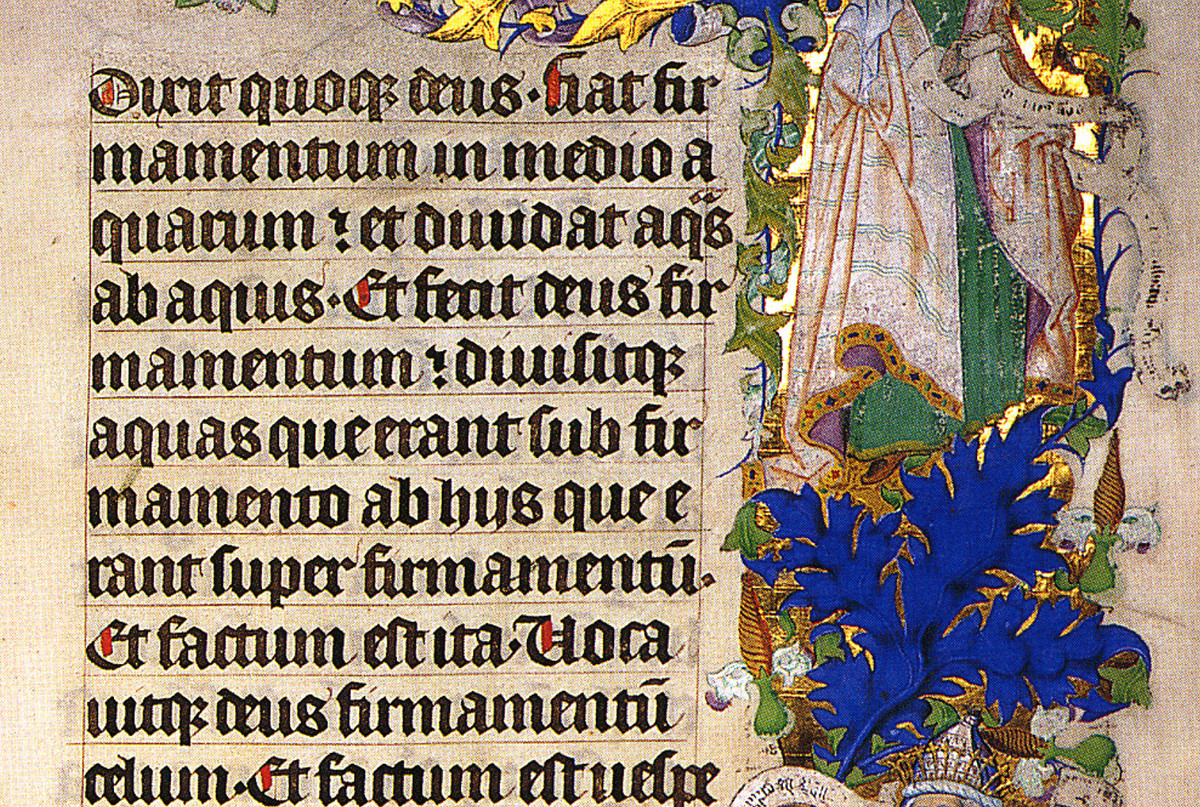 Dixit quoqꝫ deus· fiat fir
mamentum in medio a
quarum ⁊ et diuidat aqᷓs
ab aquis· Et fecit deus fir
mamentum ⁊ diuisitqꝫ
aquas que erant sub fir
mamento ab hijs que e
rant super firmamentū·
Et factum est ita· Uoca
uitqꝫ deus firmamentū
celum· Et factum est uespe